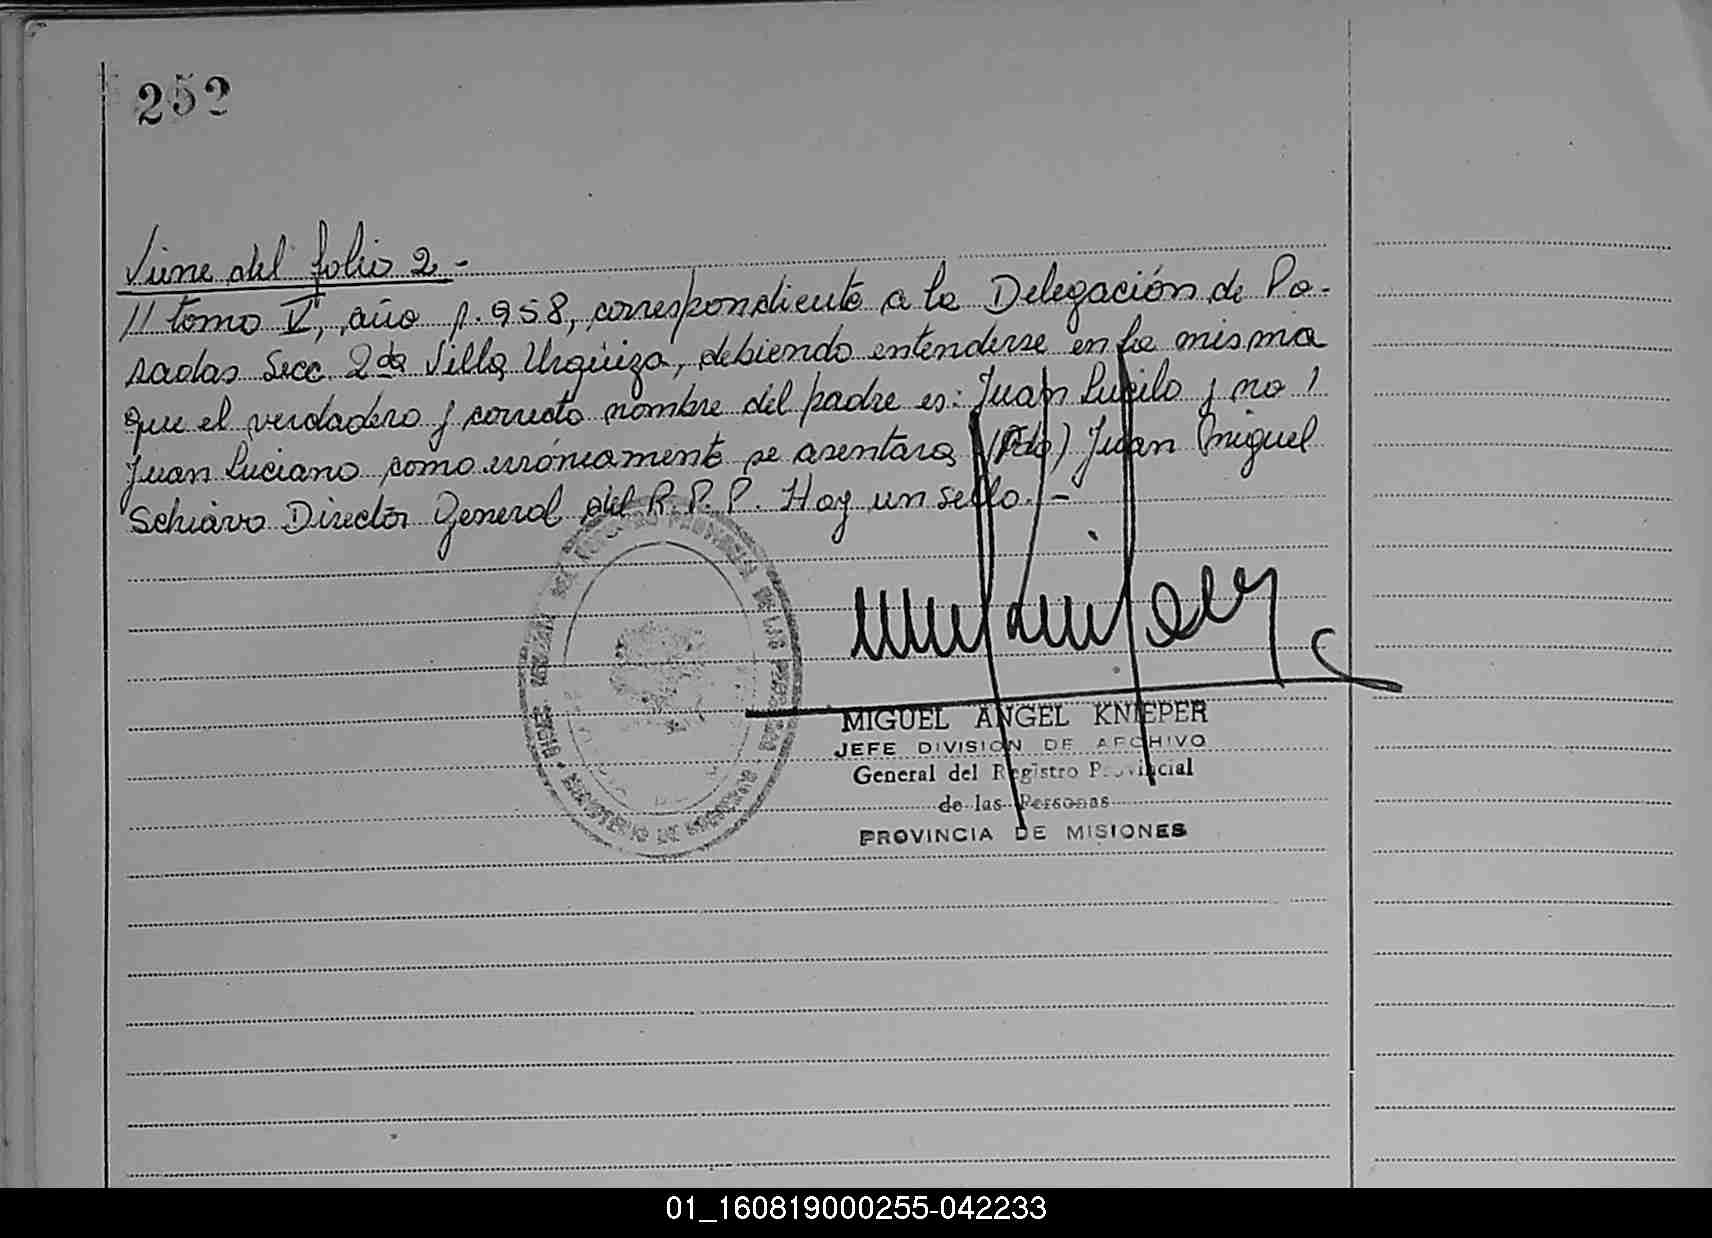 252
Viene del folio 2 -
// tomo V, año 1.958, correspondiente a la Delegación de Po-
sadas Secc. 2da Villa Urquiza, debiendo entenderse en la misma
que el verdadero y correcto nombre del padre es: Juan Lucilo y no /
Juan Luciano como erróneamente se asentara (Fdo) Juan Miguel
Schiavo Director General del R. P. P. Hay un sello. -
MIGUEL ANGEL KNIEPER
JEFE DIVISION DE ARCHIVO
General del Registro Provincial
de las Personas
PROVINCIA DE MISIONES
01_160819000255-042233